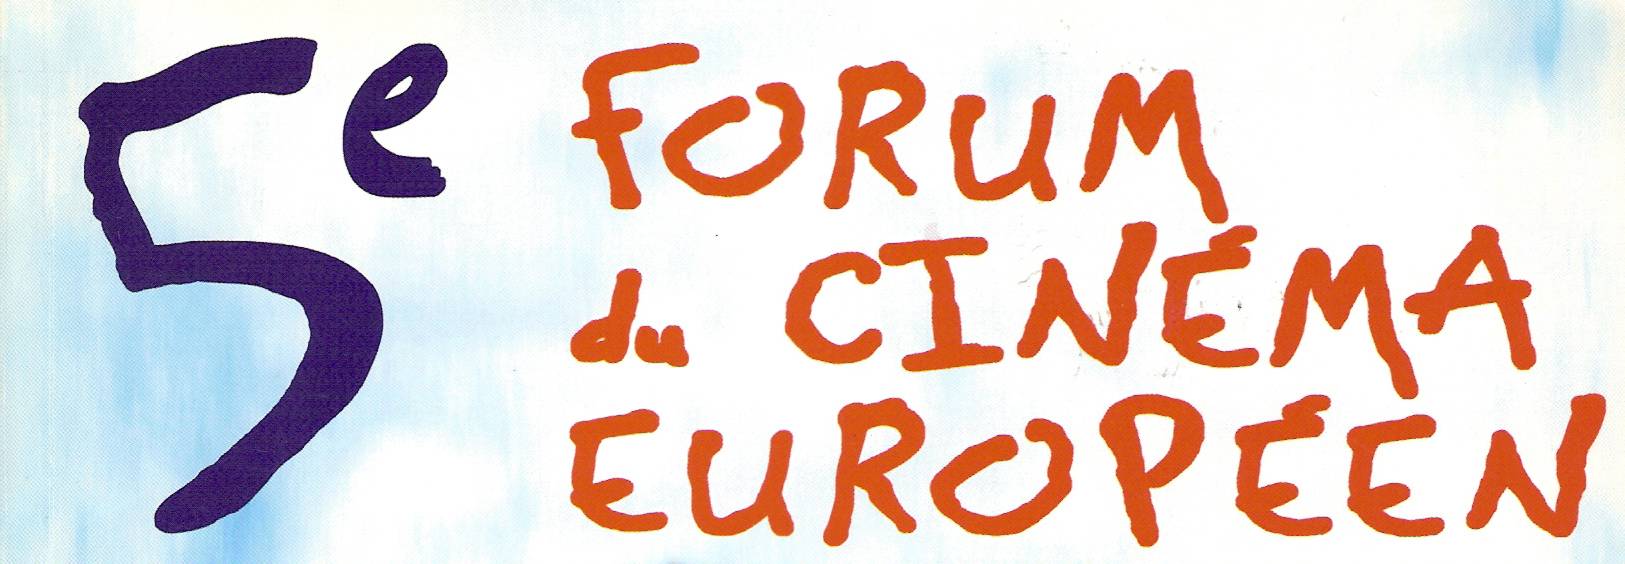 5e
FORUM
du CINÉMA
EUROPÉEN